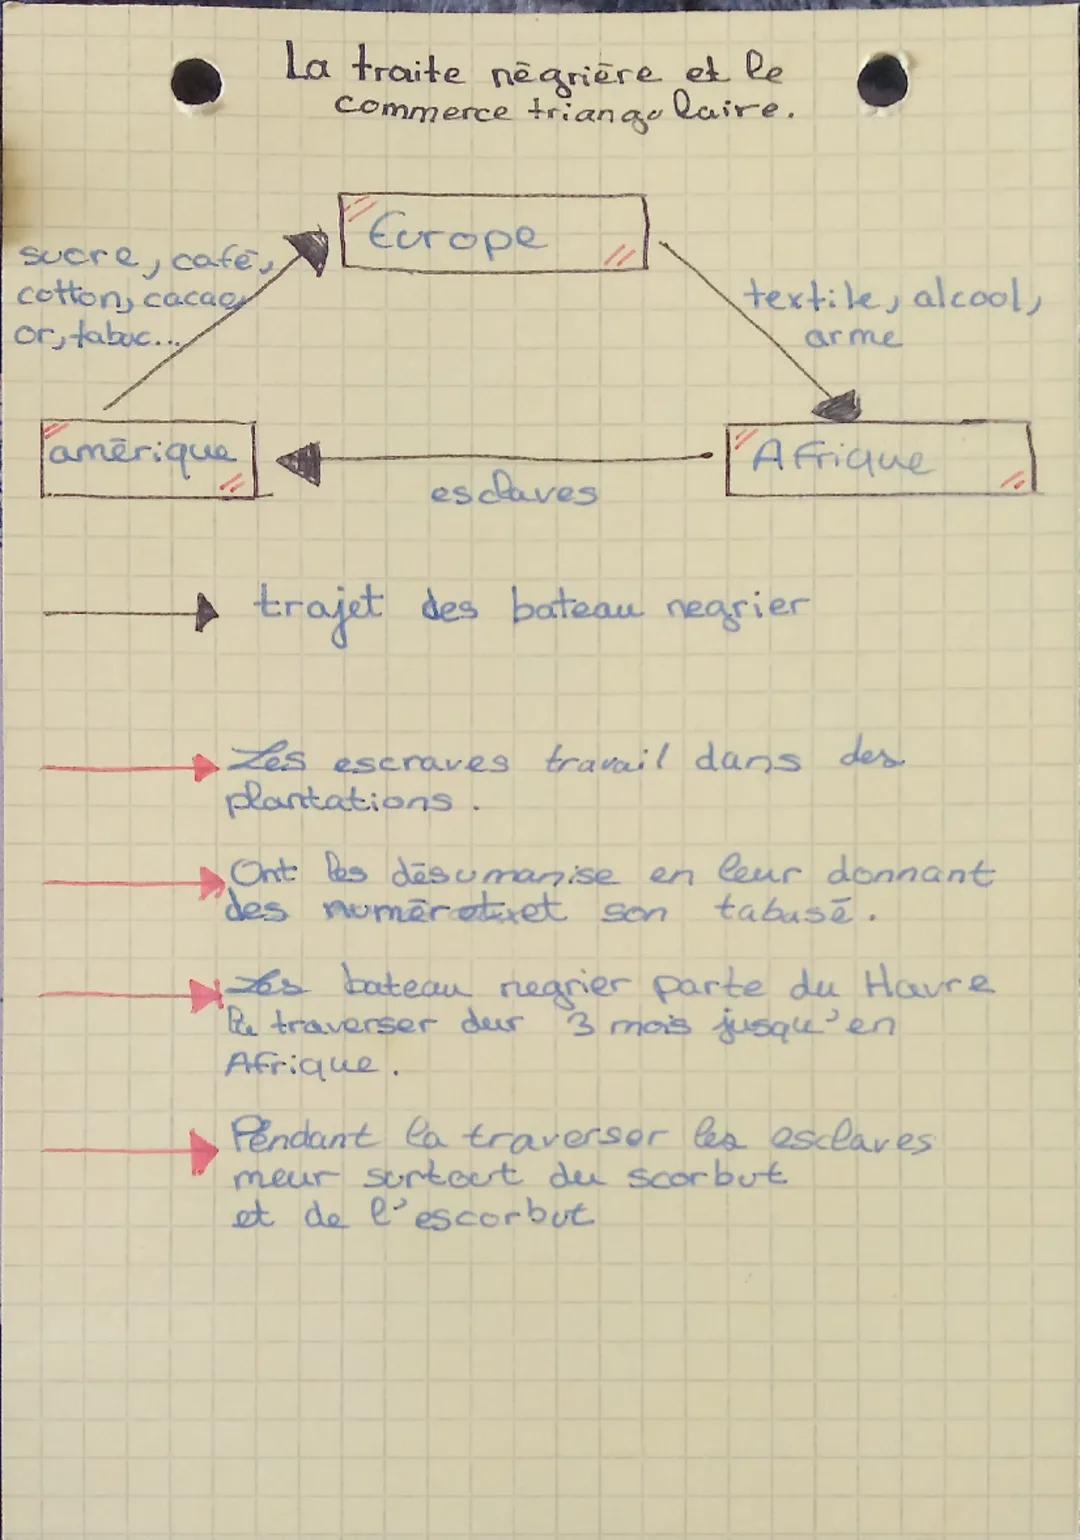 La traite négrière et le
commerce triangulaire.
Europe
sucre, café,
cotton, cacao,
or, tabac...
textile, alcool,
arme
amérique
Afrique
esclaves
trajet des bateau negrier
Les escraves travail dans des
plantations.
Ont les désumanise en leur donnant
des numérot et son tabusé.
Les bateau negrier parte du Havre
la traverser dur 3 mois jusqu'en
Afrique.
Pendant la traverser les esclaves
meur surtout du scorbut
et de l'escorbut